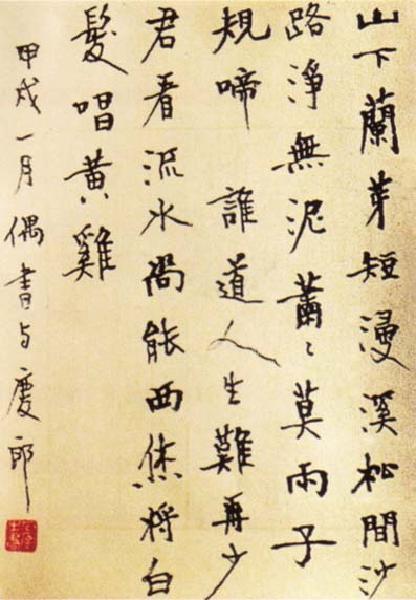 山下蘭芽短漫溪松間沙
路淨無泥蕭〻莫雨子
規啼 誰道人生難再少
君看流水尚能西烋將白
髮唱黄雞
甲戌一月偶書与慶郎